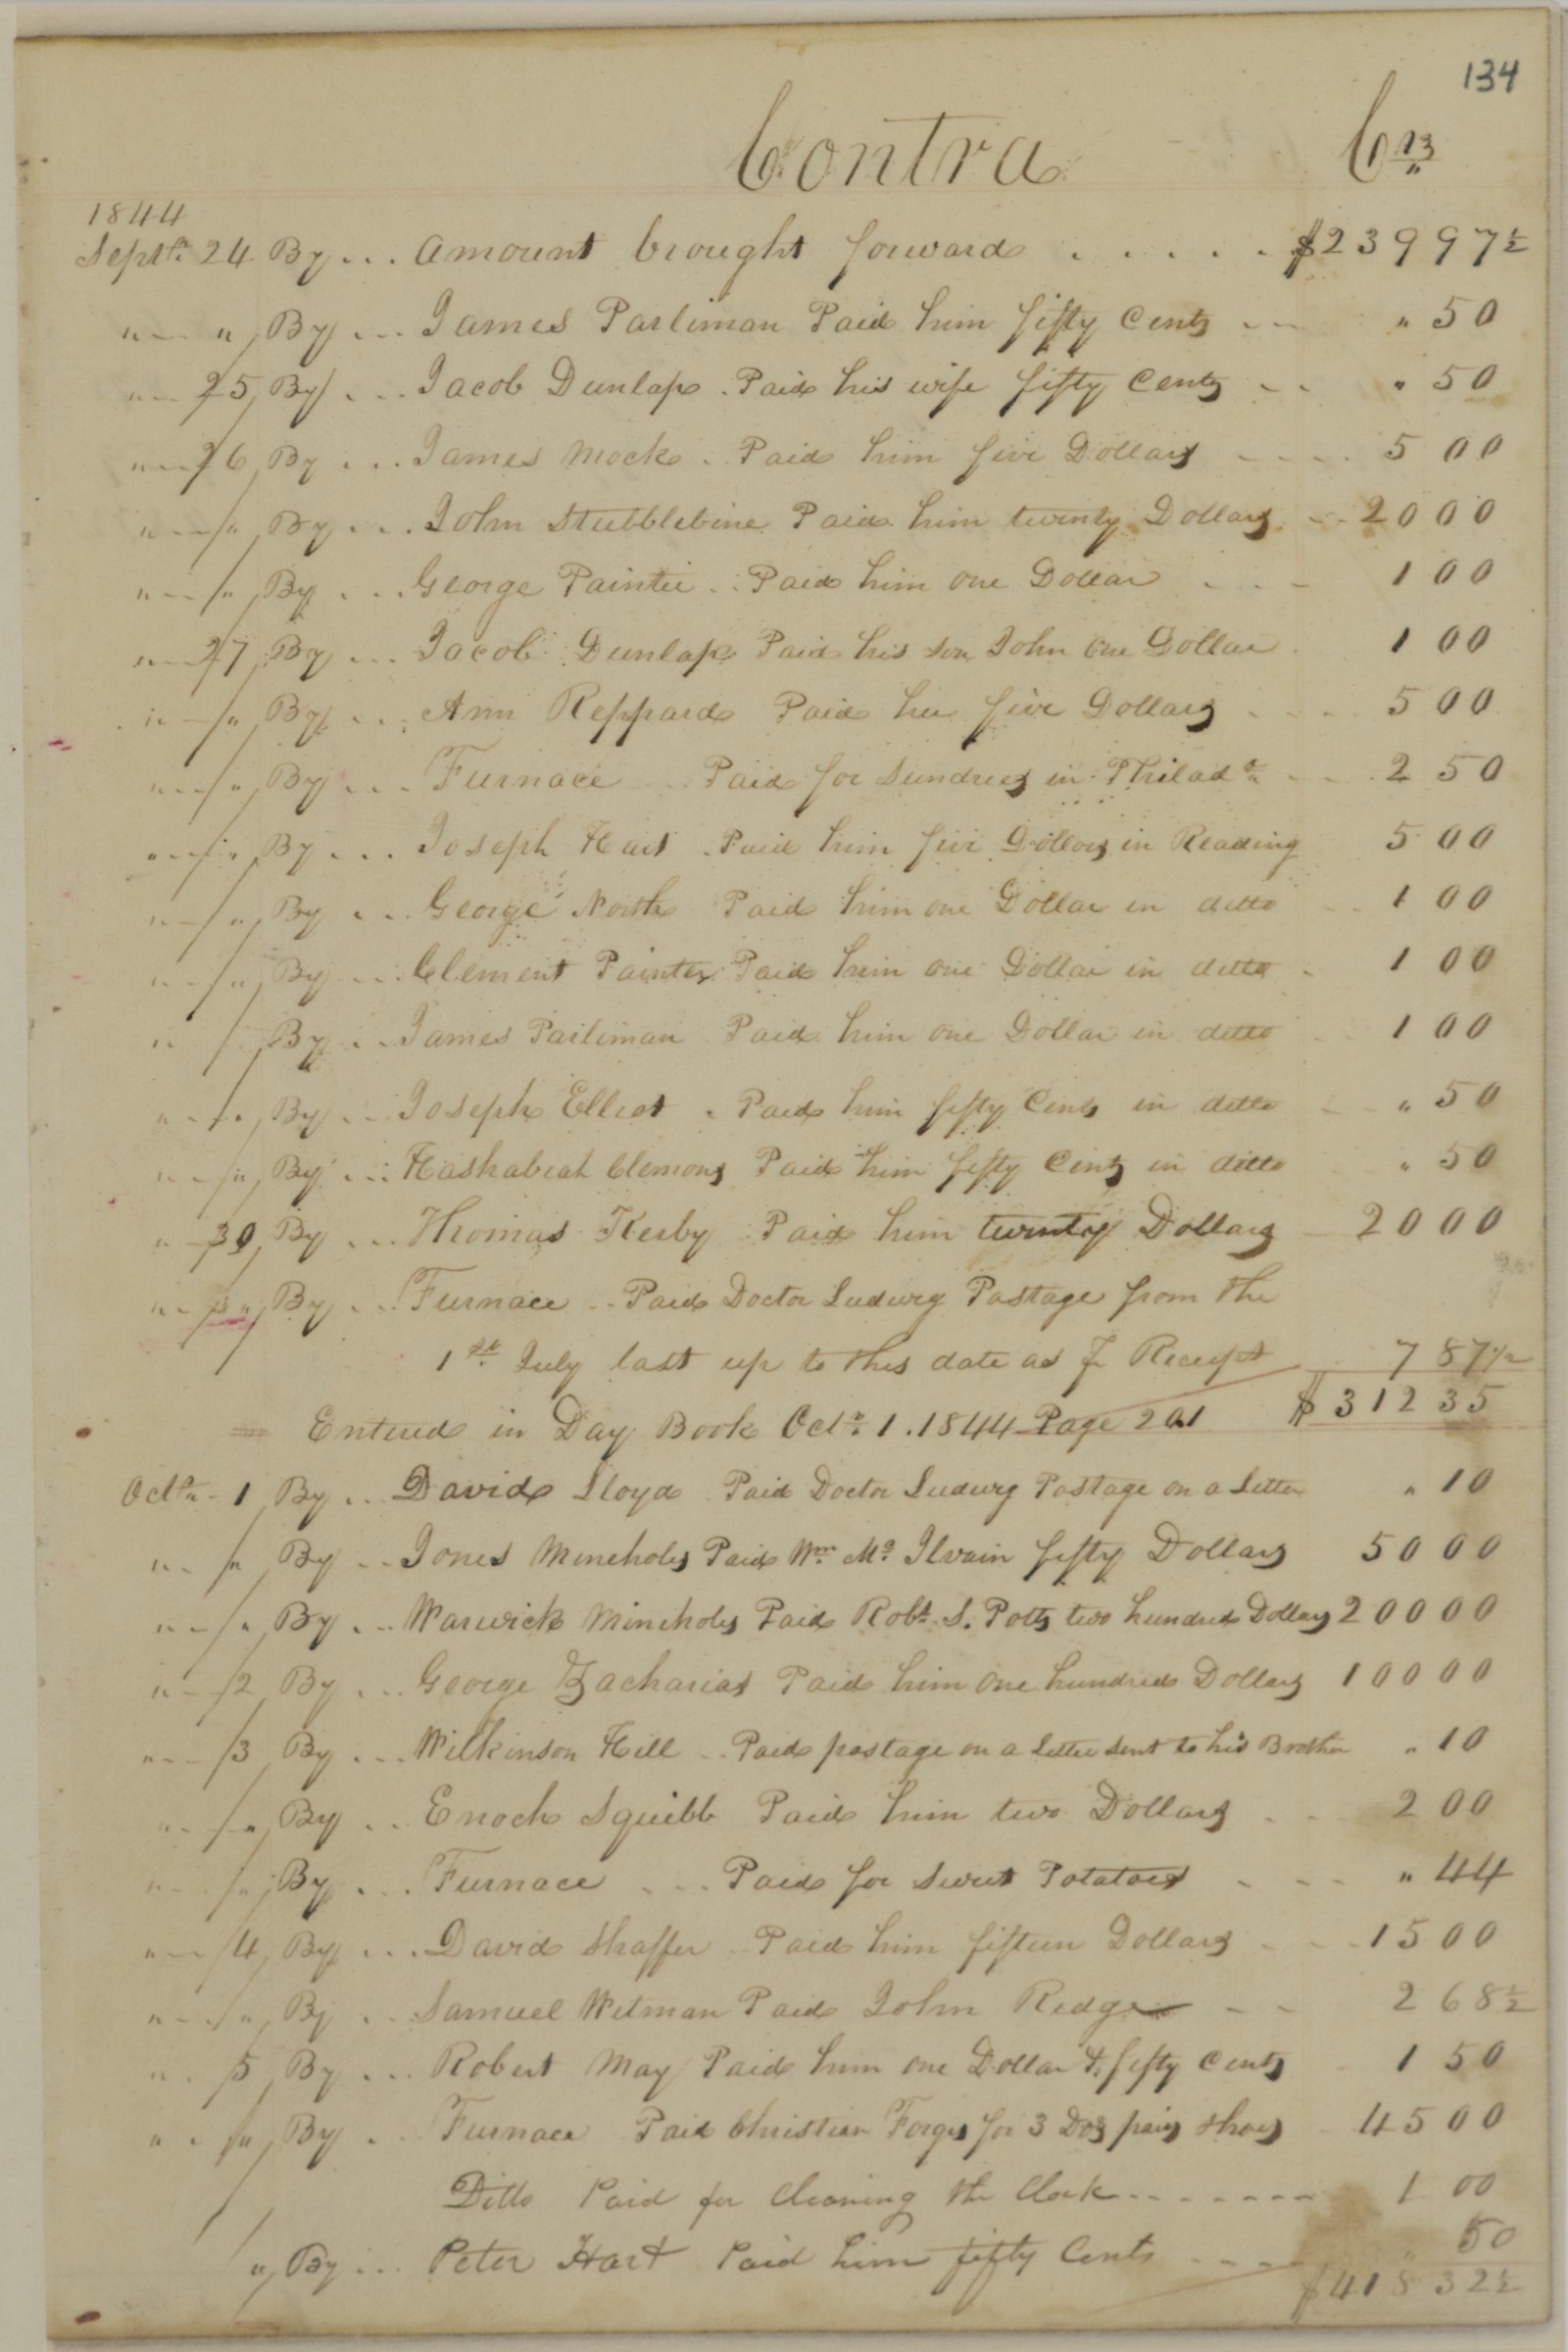 134
Contra Crs
1844
Septr. 24 By ... Amount brought forward ..... $239 97½
" — " By ... James Parliman Paid him fifty Cents -- " 50
" — 25 By ... Jacob Dunlap . Paid his wife fifty Cents -- " 50
" — 26 By ... James Mock . Paid him five Dollars ---- 5 00
" — " By ... John Stubblebine Paid him twenty Dollars -- 20 00
" — " By ... George Painter .. Paid him one Dollar ... - 1 00
" — 27 By ... Jacob Dunlap Paid his son John one Dollar . 1 00
" — " By ... Ann Reppard Paid her five Dollars - - - 5 00
" — " By ... Furnace -- Paid for Sundries in Philada. - - 2 50
" — " By ... Joseph Hart . Paid him five Dollars in Reading 5 00
" — " By ... George North Paid him one Dollar in ditto -- 1 00
" — " By ... Clement Painter Paid him one Dollar in ditto - 1 00
" By .. James Parliman Paid him one Dollar in ditto -- 1 00
" - " By ... Joseph Elliot . Paid him fifty Cents in ditto -- " 50
" - " By ... Haskabiah Clemons Paid him fifty Cents in ditto " 50
" - 30 By ... Thomas Kerby Paid him twenty Dollars - 20 00
" - " By ... Furnace .. Paid Doctor Ludwig Postage from the
1st July last up to this date as pr Receipt 7 87½
Entered in Day Book Octr. 1. 1844 Page 201 $312 35
Octr. 1 By ... David Lloyd Paid Doctor Ludwig Postage on a Letter " 10
" - " By ... Jones Mineholes Paid Wm. Mc. Ilvain fifty Dollars 50 00
" - " By ... Warwick Mineholes Paid Robt. S. Potts two hundred Dollars 200 00
" - 2 By ... George Zacharias Paid him One hundred Dollars 100 00
" - 3 By ... Wilkinson Hill .. Paid postage on a letter sent to his Brother " 10
" - " By .. Enoch Squibb Paid him two Dollars - - - 2 00
" - " By ... Furnace ... Paid for Sweet Potatoes - - - " 44
" - 4 By ... David Shaffer .. Paid him fifteen Dollars - - - 15 00
" - " By .. Samuel Witman Paid John Ridge -- 2 68½
" . 5 By ... Robert May Paid him one Dollar & fifty Cents - 1 50
" . " By . Furnace Paid Christian Forges for 3 Doz pairs Shoes - 45 00
Ditto Paid for Cleaning the Clock ------- 1 00
" By ... Peter Hart Paid him fifty Cents ---- " 50
$418 32½